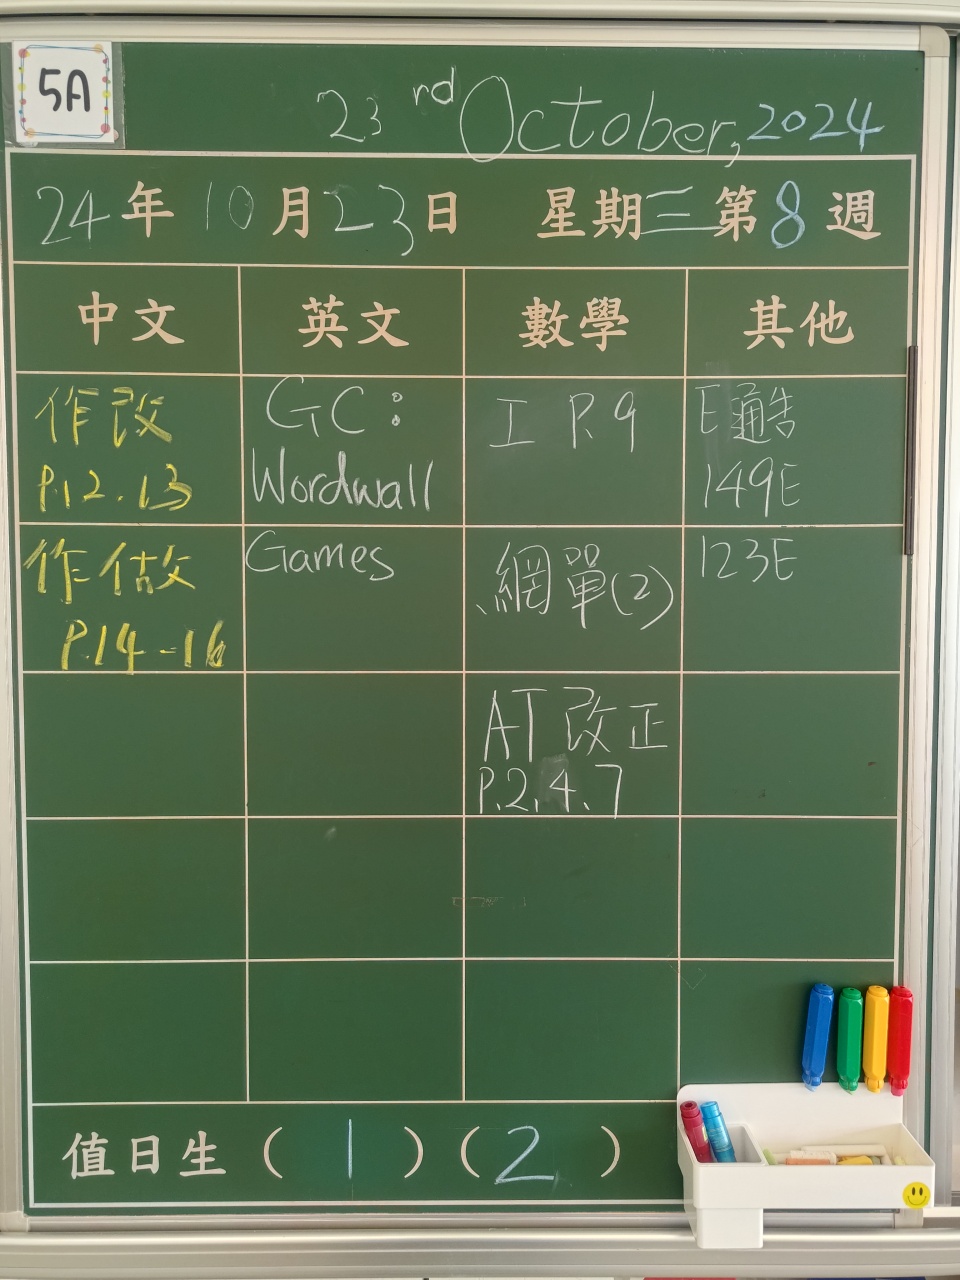 5A
23rd October, 2024
24年10月23日 星期三第8週
中文 英文 數學 其他
作改
P.12.13
GC:
Wordwall
工 P.9
E通告
149E
作做
P.14-16
Games
網單(2)
123E
AT改正
P.2.4.7
值日生(1)(2)